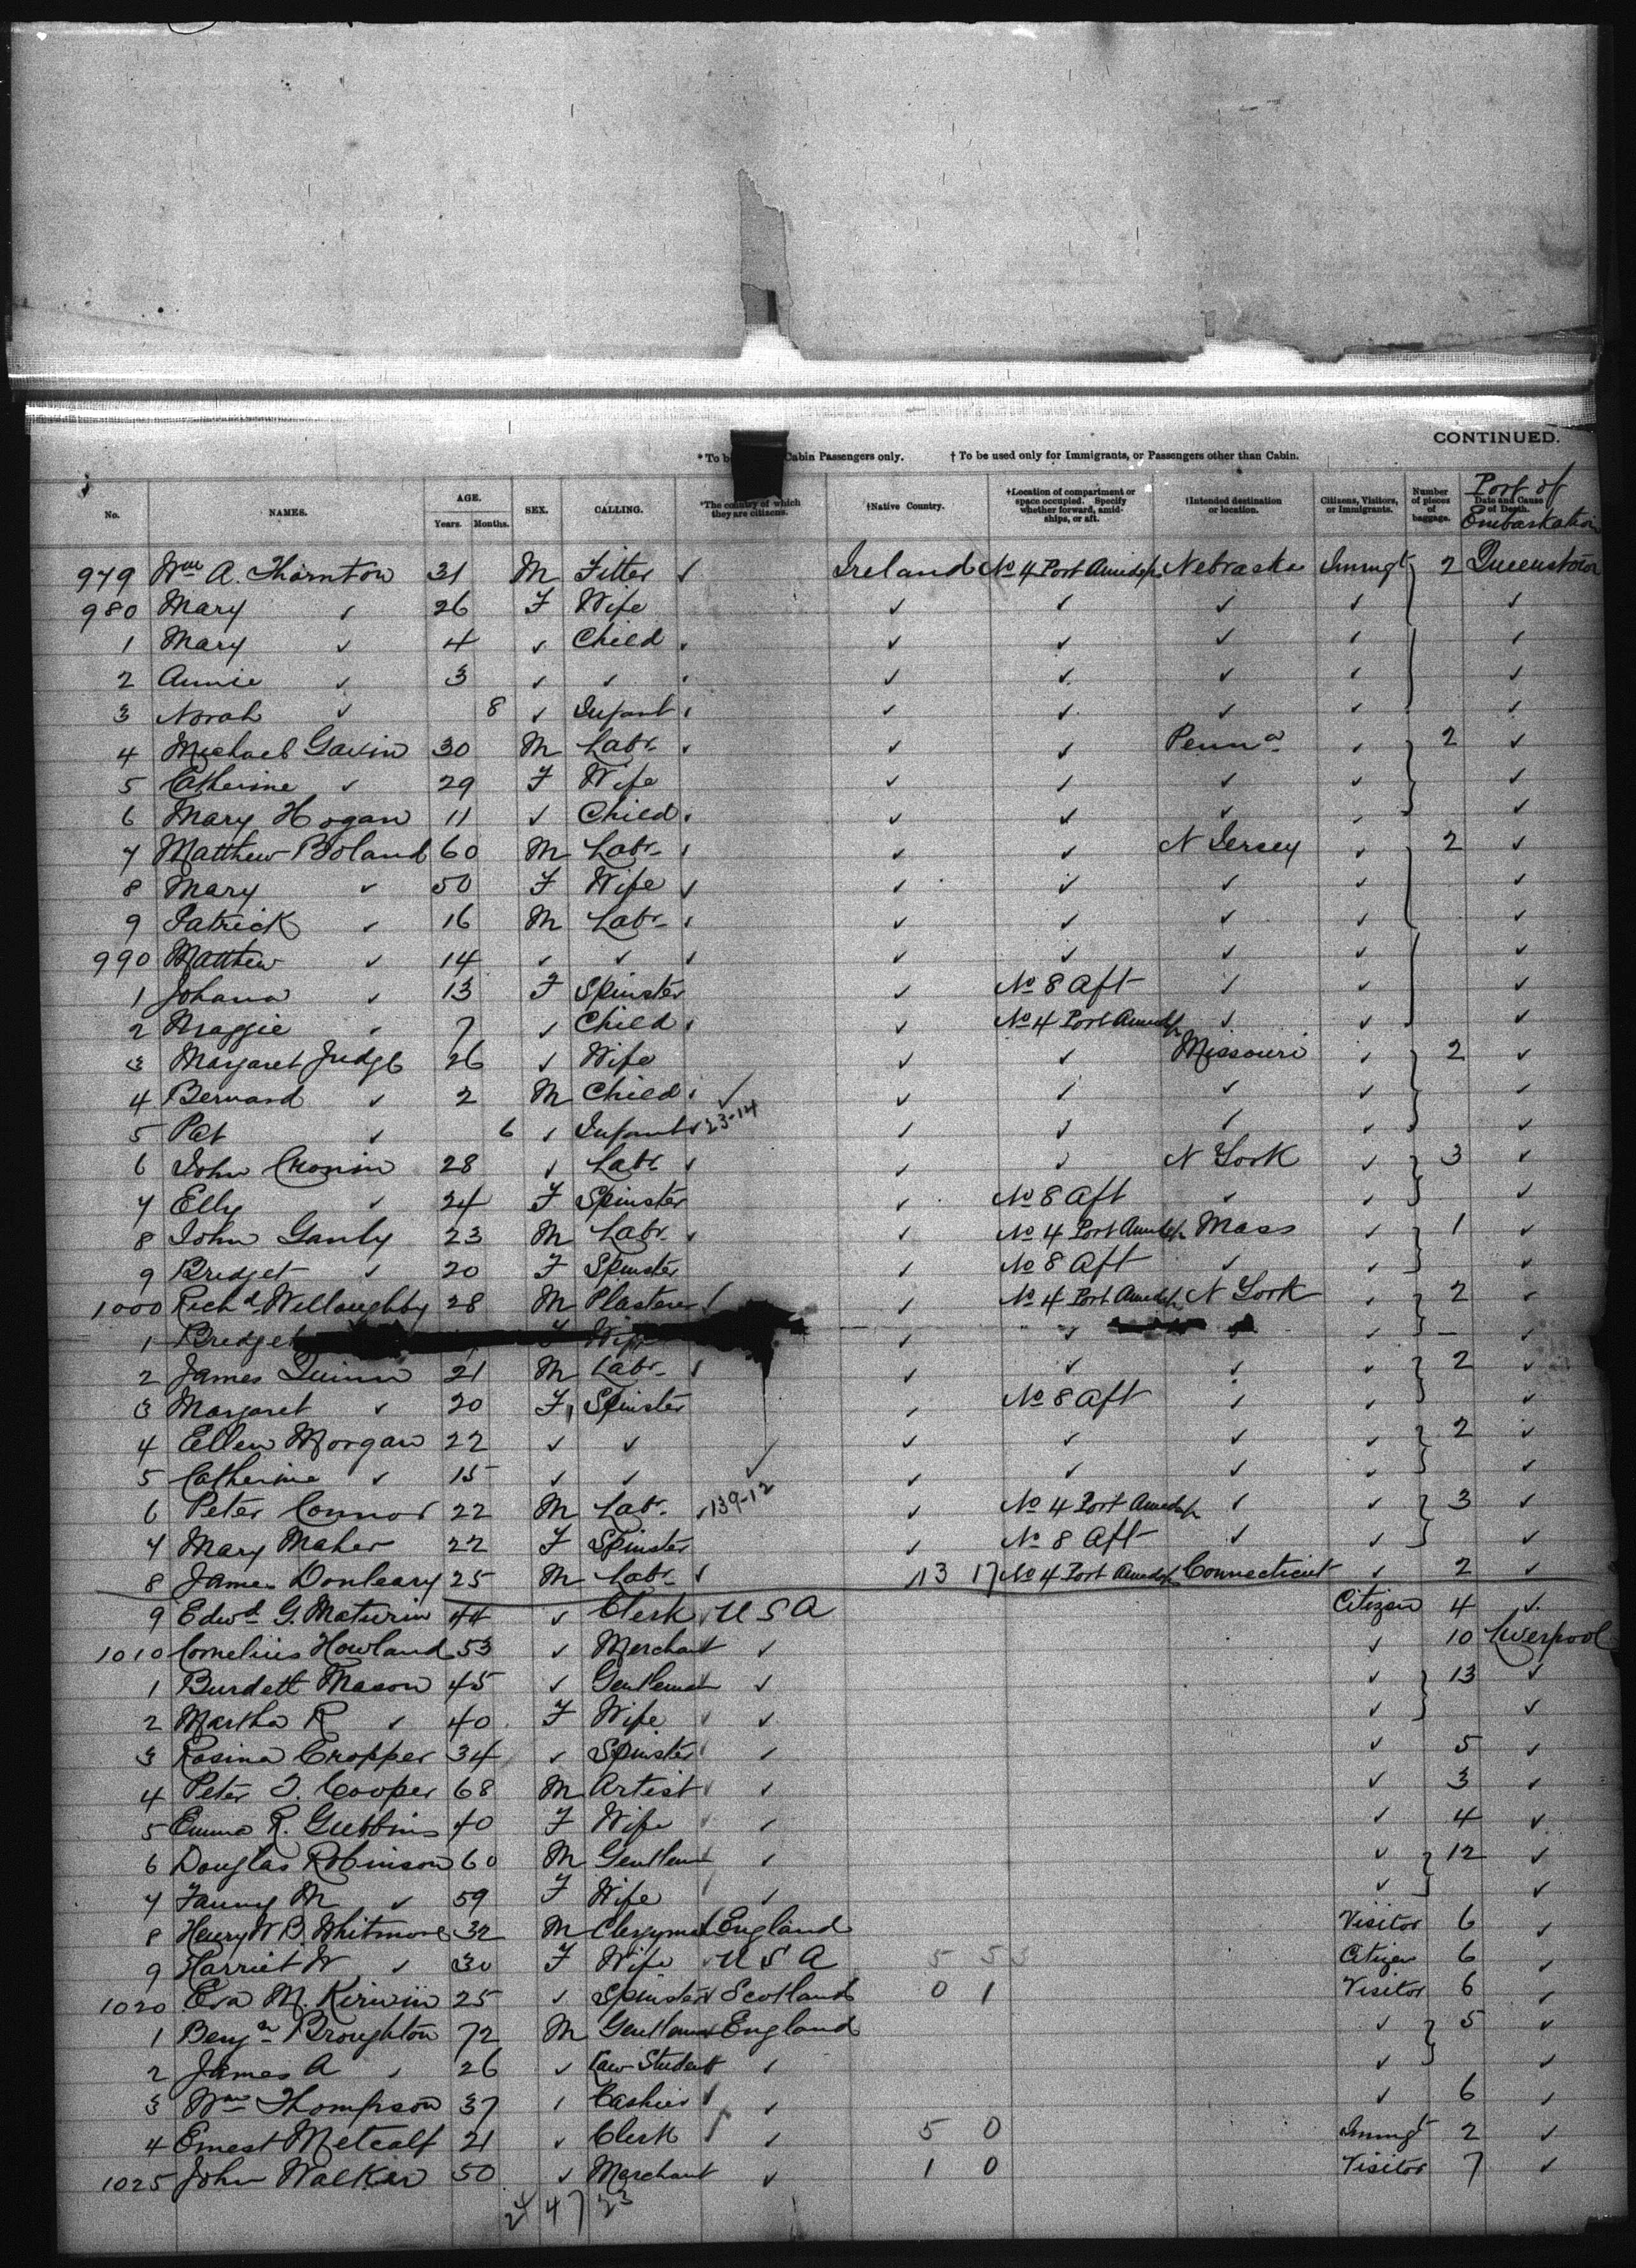 CONTINUED.
* To b Cabin Passengers only. † To be used only for Immigrants, or Passengers other than Cabin.
No. NAMES. AGE. Years. Months. SEX. CALLING. *The country of which they are citizens. †Native Country. †Location of compartment or space occupied. Specify whether forward, amidships, or aft. †Intended destination or location. Citizens, Visitors, or Immigrants. Number of pieces of baggage. Date and Cause of Death. Port of Embarkation
979 Wm A. Thornton 31 M Fitter ✓ Ireland No 4 Port Amidsps Nebraska Immgt 2 Queenstown
980 Mary ✓ 26 F Wife ✓ ✓ ✓ ✓ ✓
1 Mary ✓ 4 ✓ Child ✓ ✓ ✓ ✓ ✓ ✓
2 Annie ✓ 3 ✓ ✓ ✓ ✓ ✓ ✓ ✓ ✓
3 Norah ✓ 8 ✓ Infant ✓ ✓ ✓ ✓ ✓ ✓
4 Michael Gavin 30 M Labr. ✓ ✓ ✓ Penna ✓ 2 ✓
5 Catherine ✓ 29 F Wife ✓ ✓ ✓ ✓ ✓
6 Mary Hogan 11 ✓ Child ✓ ✓ ✓ ✓ ✓ ✓
7 Matthew Boland 60 M Labr. ✓ ✓ ✓ N Jersey ✓ 2 ✓
8 Mary ✓ 50 F Wife ✓ ✓ ✓ ✓ ✓ ✓
9 Patrick ✓ 16 M Labr. ✓ ✓ ✓ ✓ ✓ ✓
990 Matthew ✓ 14 ✓ ✓ ✓ ✓ ✓ ✓ ✓ ✓
1 Johana ✓ 13 F Spinster ✓ No 8 Aft ✓ ✓ ✓
2 Maggie ✓ 7 ✓ Child ✓ ✓ No 4 Port Amidsp ✓ ✓ ✓
3 Margaret Judge 26 ✓ Wife ✓ ✓ Missouri ✓ 2 ✓
4 Bernard ✓ 2 M Child ✓ ✓ ✓ ✓ ✓ ✓ ✓
5 Pat ✓ 6 ✓ Infant ✓ 23-14 ✓ ✓ ✓ ✓ ✓
6 John Cronin 28 ✓ Labr. ✓ ✓ ✓ N York ✓ 3 ✓
7 Elly ✓ 24 F Spinster ✓ No 8 Aft ✓ ✓ ✓
8 John Ganly 23 M Labr. ✓ ✓ No 4 Port Amidsp Mass ✓ 1 ✓
9 Bridget ✓ 20 F Spinster ✓ No 8 Aft ✓ ✓ ✓
1000 Richd Willoughby 28 M Plasterer ✓ ✓ No 4 Port Amidsp N York ✓ 2 ✓
1 Bridget F Wife ✓ ✓ ✓ – ✓
2 James Quinn 21 M Labr. ✓ ✓ ✓ ✓ ✓ 2 ✓
3 Margaret ✓ 20 F Spinster ✓ No 8 Aft ✓ ✓ ✓
4 Ellen Morgan 22 ✓ ✓ ✓ ✓ ✓ ✓ ✓ 2 ✓
5 Catherine ✓ 15 ✓ ✓ ✓ ✓ ✓ ✓ ✓ ✓
6 Peter Connor 22 M Labr. ✓ 139-12 ✓ No 4 Port Amidsp ✓ ✓ 3 ✓
7 Mary Maher 22 F Spinster ✓ No 8 Aft ✓ ✓ ✓
8 James Donleary 25 M Labr. ✓ ✓ 13 17 No 4 Port Amidsps Connecticut ✓ 2 ✓
9 Edwd G. Maturin 44 ✓ Clerk ✓ U S A Citizen 4 ✓
1010 Cornelius Howland 53 ✓ Merchant ✓ ✓ 10 Liverpool
1 Burdett Mason 45 ✓ Gentleman ✓ ✓ 13 ✓
2 Martha R ✓ 40 F Wife ✓ ✓ ✓ ✓
3 Rosina Cropper 34 ✓ Spinster ✓ ✓ ✓ 5 ✓
4 Peter T. Cooper 68 M Artist ✓ ✓ ✓ 3 ✓
5 Emma R. Gubbins 40 F Wife ✓ ✓ ✓ 4 ✓
6 Douglas Robinson 60 M Gentlem ✓ ✓ 12 ✓
7 Fanny M ✓ 59 F Wife ✓ ✓ ✓ ✓
8 Henry W B. Whitmore 32 M Clergyman England Visitor 6 ✓
9 Harriet W ✓ 30 F Wife ✓ U S A 5 53 Citizen 6 ✓
1020 Eva M. Kirwin 25 ✓ Spinster ✓ Scotland 0 1 Visitor 6 ✓
1 Benjn Broughton 72 M Gentleman England ✓ 5 ✓
2 James A ✓ 26 ✓ Law Student ✓ ✓ ✓
3 Wm Thompson 37 ✓ Cashier ✓ ✓ ✓ 6 ✓
4 Ernest Metcalf 21 ✓ Clerk ✓ ✓ 5 0 Immgt 2 ✓
1025 John Walker 50 ✓ Merchant ✓ 1 0 Visitor 7 ✓
24 47 23